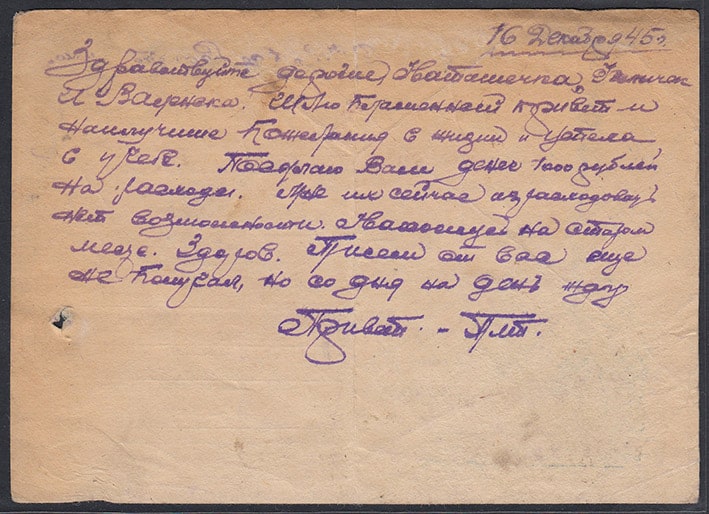 16 Декабря 45 г.
Здравствуйте дорогие, Наташечка,
и Валрнска. Шлю пламенный привет и
наилучшие пожелания в жизни и успеха
в учебе. Посылаю Вам денег 1000 рублей
на расходы. Мне их сейчас израсходовать
нет возможности. Нахожусь на старом
месте. Здоров. Писем от вас еще
не получал, но со дня на день жду
Привет. -